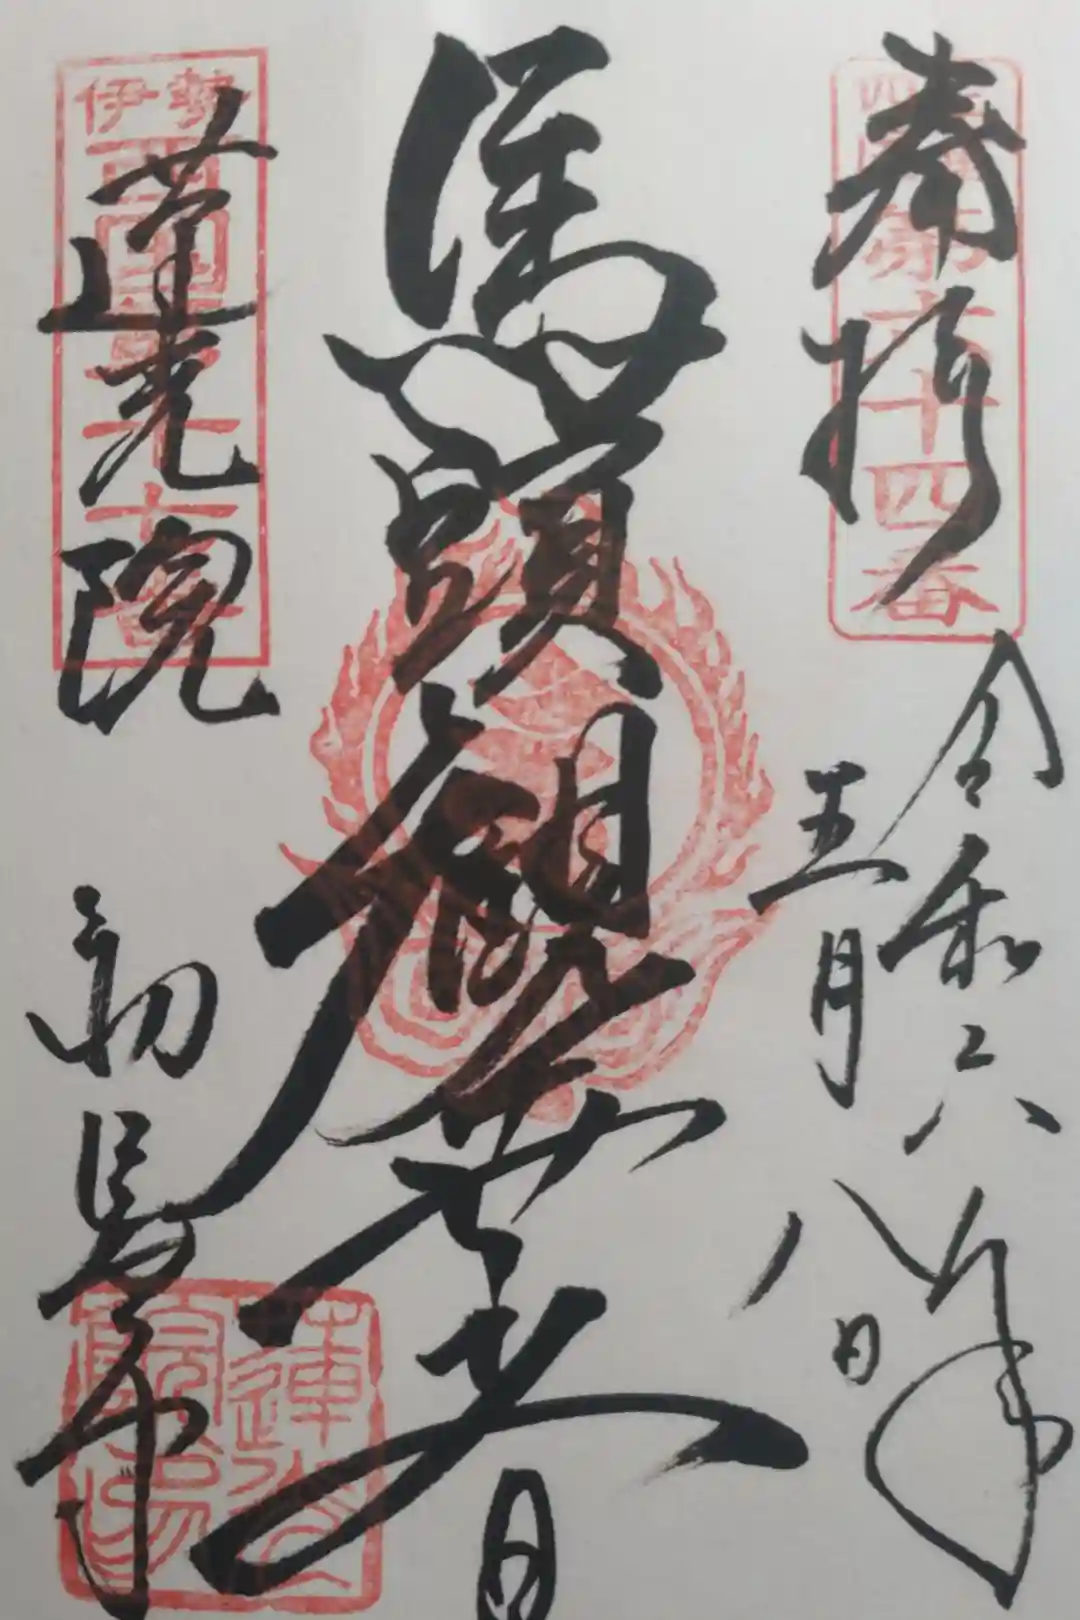 奉拝
令和六年
五月
八日
馬頭觀世音
蓮光院
初馬寺
十四番
伊勢